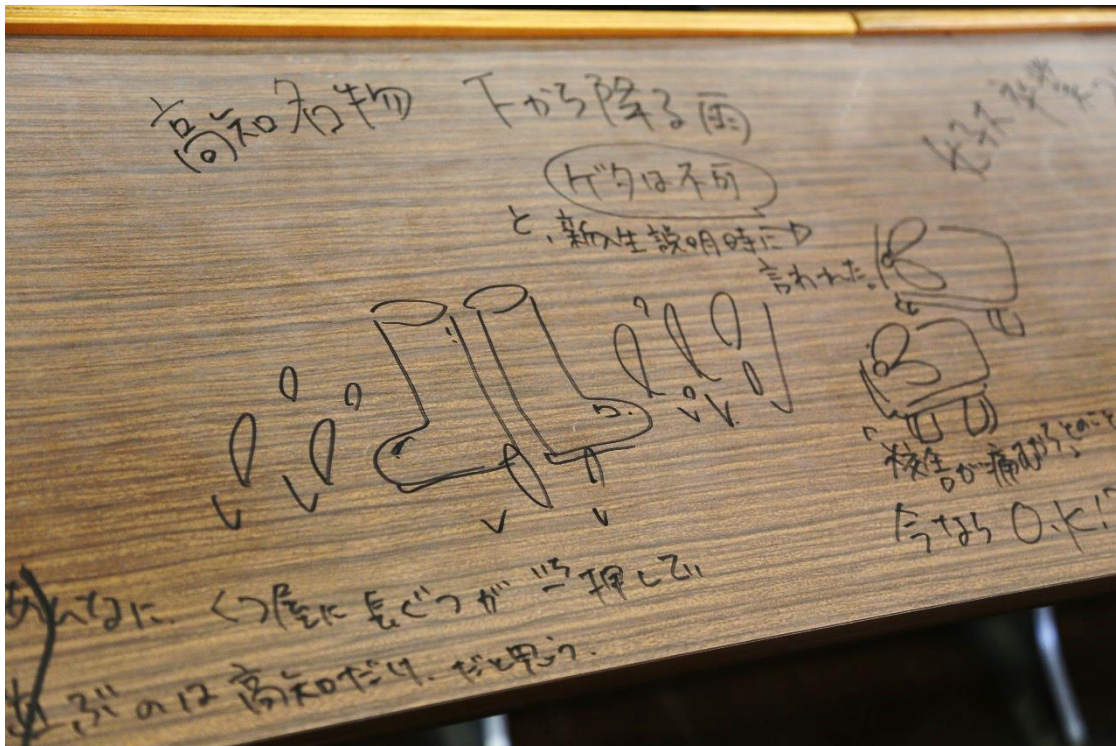 高知名物 下から降る雨
ゲタは不可
と、新入生説明時に
言われた。
校舎が痛むからとのこと
今なら O.K!
あんなに くつ屋に 長ぐつが 押して
ぶのは高知だけ、だと思う。